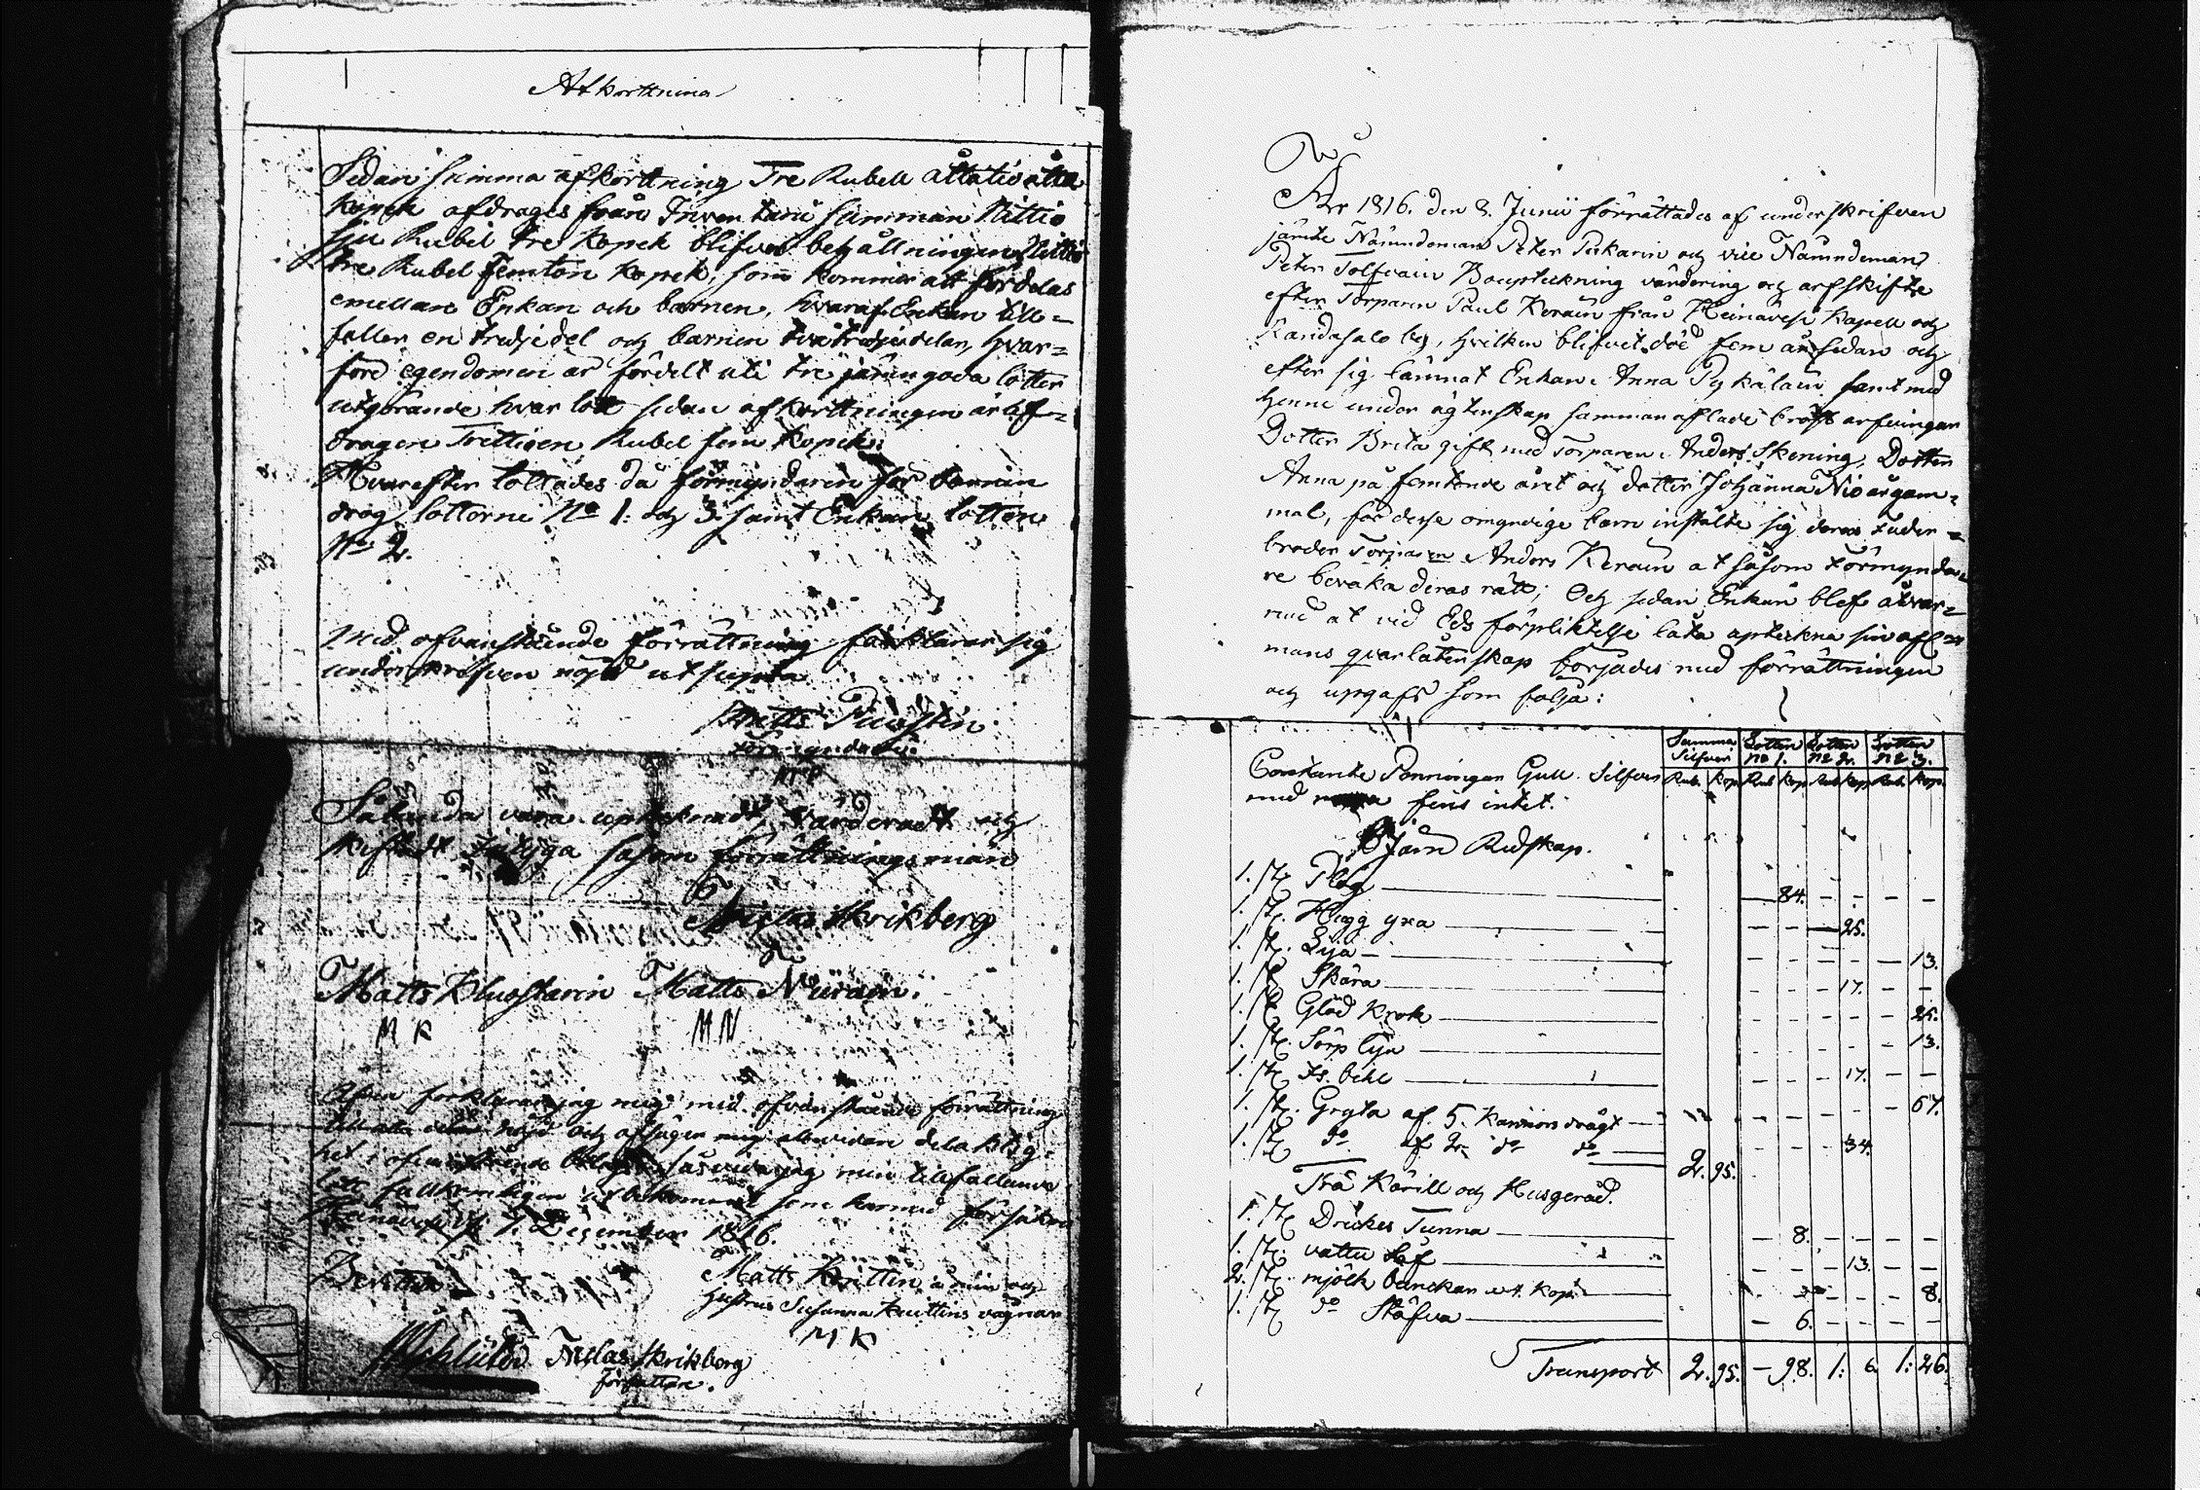 Afkorttning
Sedan summa afkorttning Tre Rubell åttatio åtta
kopek afdrages från Inventarii summan Nittio
sju Rubel tre kopek blifver behållningen Nittio
tre Rubel Femton kopek, som kommer att fördelas
emellan Enkan och barnen, hvaraf Enkan till=
faller en tredjedel och barnen två tredjedelar, hvar=
före egendomen är fördelt uti tre jämngoda lotter
utgörande hvar lott sedan afkorttningen är af=
dragen Trettioen Rubel fem kopek.
Hvarefter lottades då förmyndaren för barnen
drog lotterne No 1. och 3. samt Enkan lotten
No 2.
Med ofvanstående förrättning förklarar sig
underskrifven nöjd ut supra
Matts
förmyndare.
Sålunda vara upteknadt, värderadt och
skiftadt intyga såsom förrättningsmän
Niclas Skrikberg
Matts Kluostarin Matts Nüräin.
M K MN
Äfven förklarar jag mig med ofvanstående förrättning
nöjd och afsäger mig all vidare delaktig=
het i ofvanstående så vida jag min tillfallande
lott fullkomligen utbekommit som härmed försäkras
Heinävesi d. 7. December 1816.
Bevittna Matts Kuittin å min och
hustrus Susanna Kuittins vägnar
M K
Niclas Skrikberg
författare.
År 1816. den 8. Junii förrättades af underskrifven
jämte Nämndeman Peter Paskarin och vice Nämndeman
Peter Tolfvain Boupteckning värdering och arfskifte
efter Torparen Paul Keräin från Heinävesi Kapell och
Kandasalo by, hvilken blifvit död fem år sedan och
efter sig lämnat Enkan Anna Pykäläin samt med
henne under ägtenskap sammanaflade bröst arfvingar
Dotter Brita gift med Torparen Anders Skening, Dotter
Anna på femtonde året och dotter Johanna Nio år gam=
mal, för desse omyndige barn instälte sig deras Fader=
broder Torparen Anders Keräin at såsom Förmynda=
re bevaka deras rätt; Och sedan Enkan blef åtvar=
nad at vid Eds förpliktelse låta upteckna sin afl:n
mans qvarlåtenskap börjades med förrättningen
och upgafs som följa:
Summa Silfver Lotten No 1. Lotten No 2. Lotten No 3.
Contante Penningar Gull Silfver Rub. Kop. Rub. Kop. Rub. Kop. Rub. Kop.
med mera fins intet.
Järn Redskap.
1. st. Plog — 84. — — — —
1. st. Hugg yxa — — — 25.
1. st. Lija — — — — — 13.
1. st. Skära — — — 17. — —
1. st. Glöd Krok — — — — — 25.
1. st. Sörp Lija — — — — — 13.
1. st. Is bihl — — — 17. — —
1. st. Gryta af 5. Kannors drägt — — — — — 67.
1. st. do af 2. do do — — — 34.
2. 95.
Trä Kärill och Husgeråd.
1. st. Drickes Tunna — 8. — — — —
1. st. vattu såf — — — 13. — —
2. st. mjölk bunckar a 4. Kop. — — — — 8.
1. st. do Stäfva — 6. — — — —
Transport 2. 95. — 98. 1: 6 1: 26.